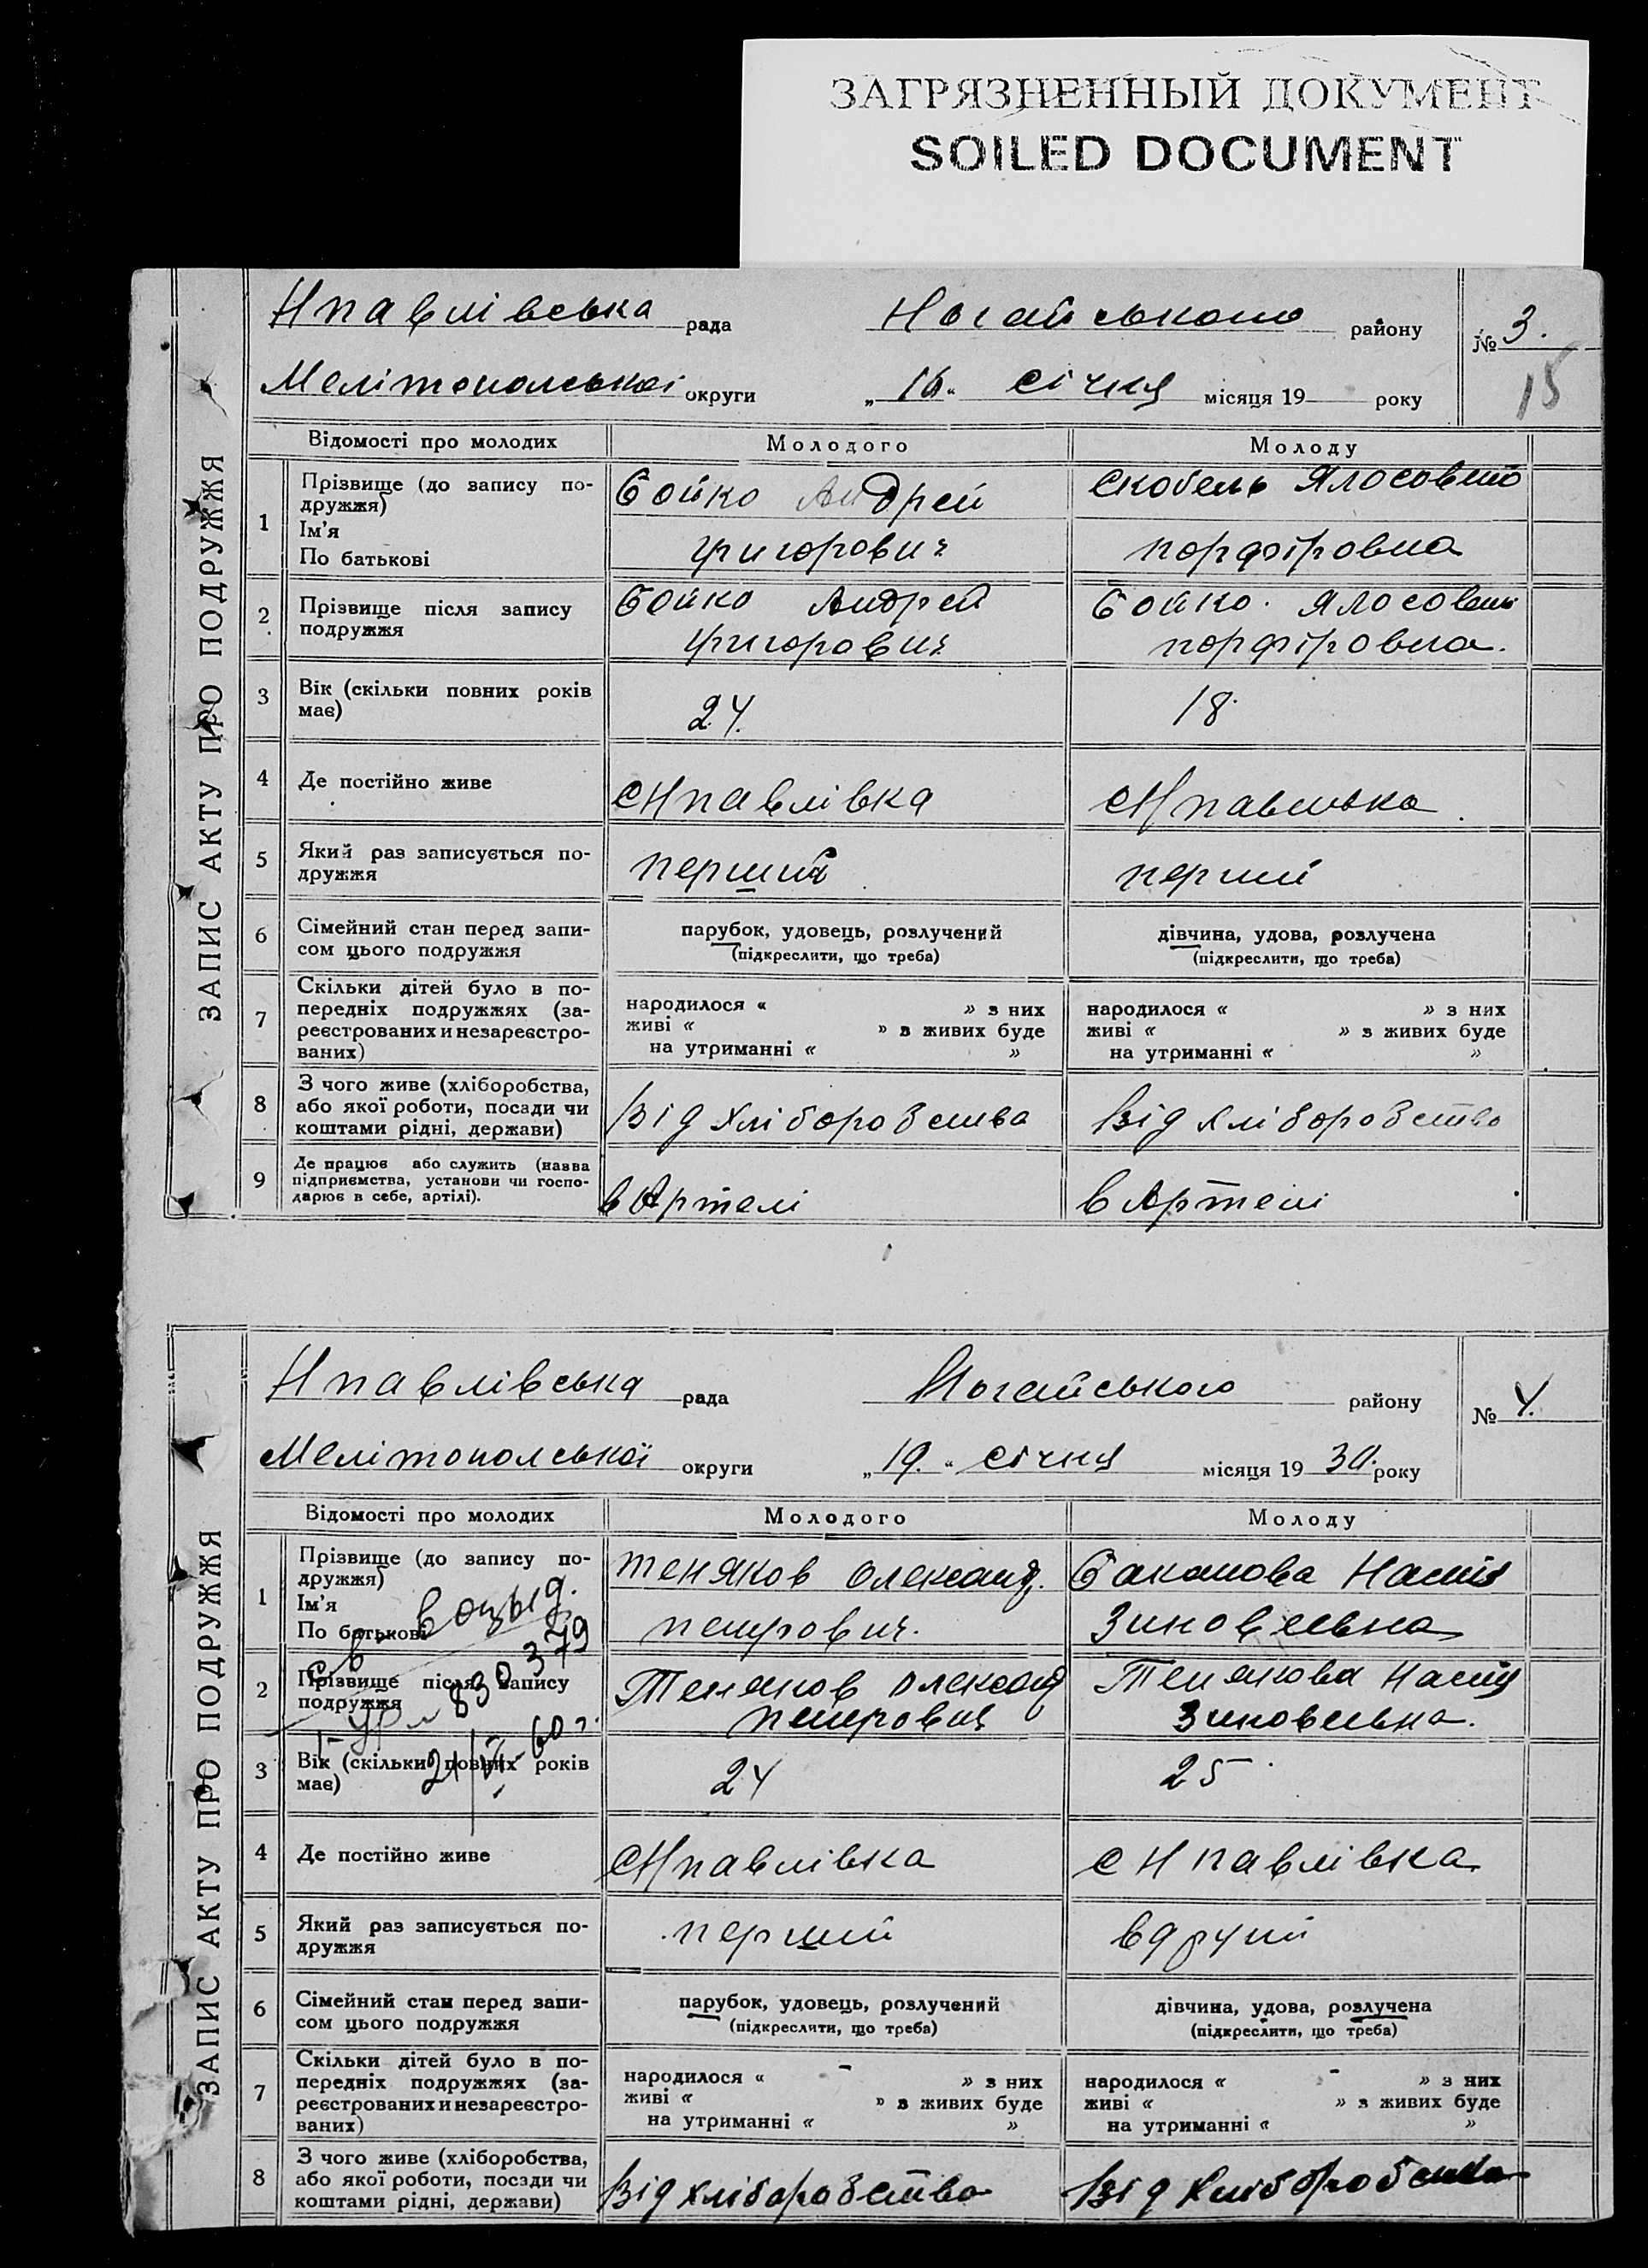 ЗАГРЯЗНЕННЫЙ ДОКУМЕНТ
SOILED DOCUMENT
ЗАПИС АКТУ ПРО ПОДРУЖЖЯ
Нпавлівська рада Ногайського району № 3.
Мелітопольської округи „16“ січня місяця 19 року
15
Відомості про молодих Молодого Молоду
1 Прізвище (до запису по-
дружжя)
Ім'я
По батькові
Бойко Андрей
григорович
Скобель
порфіровна
2 Прізвище після запису
подружжя
Бойко Андрей
григорович
Бойко.
порфіровна.
3 Вік (скільки повних років
має)
24.
18.
4 Де постійно живе
сНпавлівка
сНпавлівка
5 Який раз записується по-
дружжя
перший
перший
6 Сімейний стан перед запи-
сом цього подружжя
парубок, удовець, розлучений
(підкреслити, що треба)
дівчина, удова, розлучена
(підкреслити, що треба)
7 Скільки дітей було в по-
передніх подружжях (за-
реєстрованих и незареєстро-
ваних)
народилося « » з них
живі « » з живих буде
на утриманні « »
народилося « » з них
живі « » з живих буде
на утриманні « »
8 З чого живе (хліборобства,
або якої роботи, посади чи
коштами рідні, держави)
Від хліборобства
Від хліборобства
9 Де працює або служить (назва
підприємства, установи чи госпо-
дарює в себе, артілі).
в Артелі
в Артелі
ЗАПИС АКТУ ПРО ПОДРУЖЖЯ
Нпавлівська рада Ногайського району № 4.
Мелітополської округи „19.“ січня місяця 1930. року
Відомості про молодих Молодого Молоду
1 Прізвище (до запису по-
дружжя)
Ім'я
По батькові
теняков Олександ.
петрович.
Баканова Настя
Зиновєевна
2 Прізвище після запису
подружжя
Теняков Олександ
петрович
Тенякова Настя
Зиновеевна.
830379
60 г.
3 Вік (скільки повних років
має)
24
25
4 Де постійно живе
сНпавлівка
с Нпавлівка
5 Який раз записується по-
дружжя
перший
вдругий
6 Сімейний стан перед запи-
сом цього подружжя
парубок, удовець, розлучений
(підкреслити, що треба)
дівчина, удова, розлучена
(підкреслити, що треба)
7 Скільки дітей було в по-
передніх подружжях (за-
реєстрованих и незареєстро-
ваних)
народилося « - » з них
живі « » з живих буде
на утриманні « »
народилося « - » з них
живі « » з живих буде
на утриманні « »
8 З чого живе (хліборобства,
або якої роботи, посади чи
коштами рідні, держави)
Від хліборобства
Від хліборобства